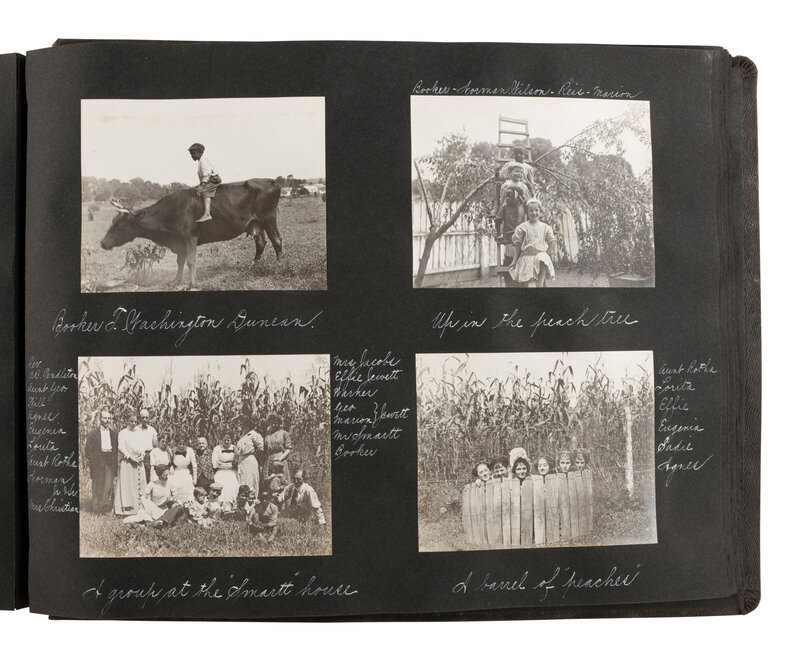 Booker T. Washington Duncan.
Booker - Norman Wilson - Reis - Marion
Up in the peach tree
Rev.
Pendleton
Aunt Geo
Will
Agnes
Eugenia
Lorita
Aunt Rotha
Norman
Mr Christian
Mrs Jacobs
Effie Jewett
Warner
Geo
Marion } Jewett
Mr Smartt
Booker
A group at the "Smartt" house
Aunt Rotha
Lorita
Effie
Eugenia
Sadie
Agnes
A barrel of "peaches"